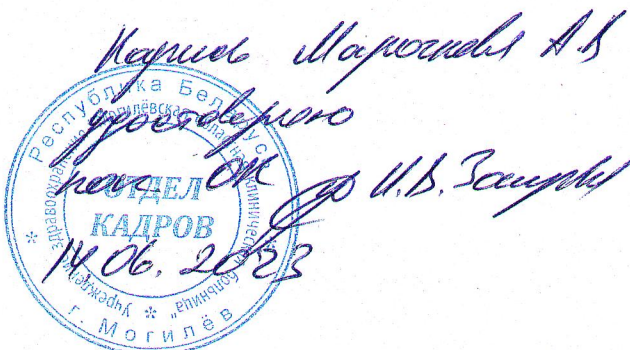 Марочкова А.В
удостоверяю
нач. ОК И.В.
14.06.2023
Республика Беларусь
Учреждение здравоохранения "Могилёвская областная клиническая больница"
г. Могилёв
ОТДЕЛ
КАДРОВ